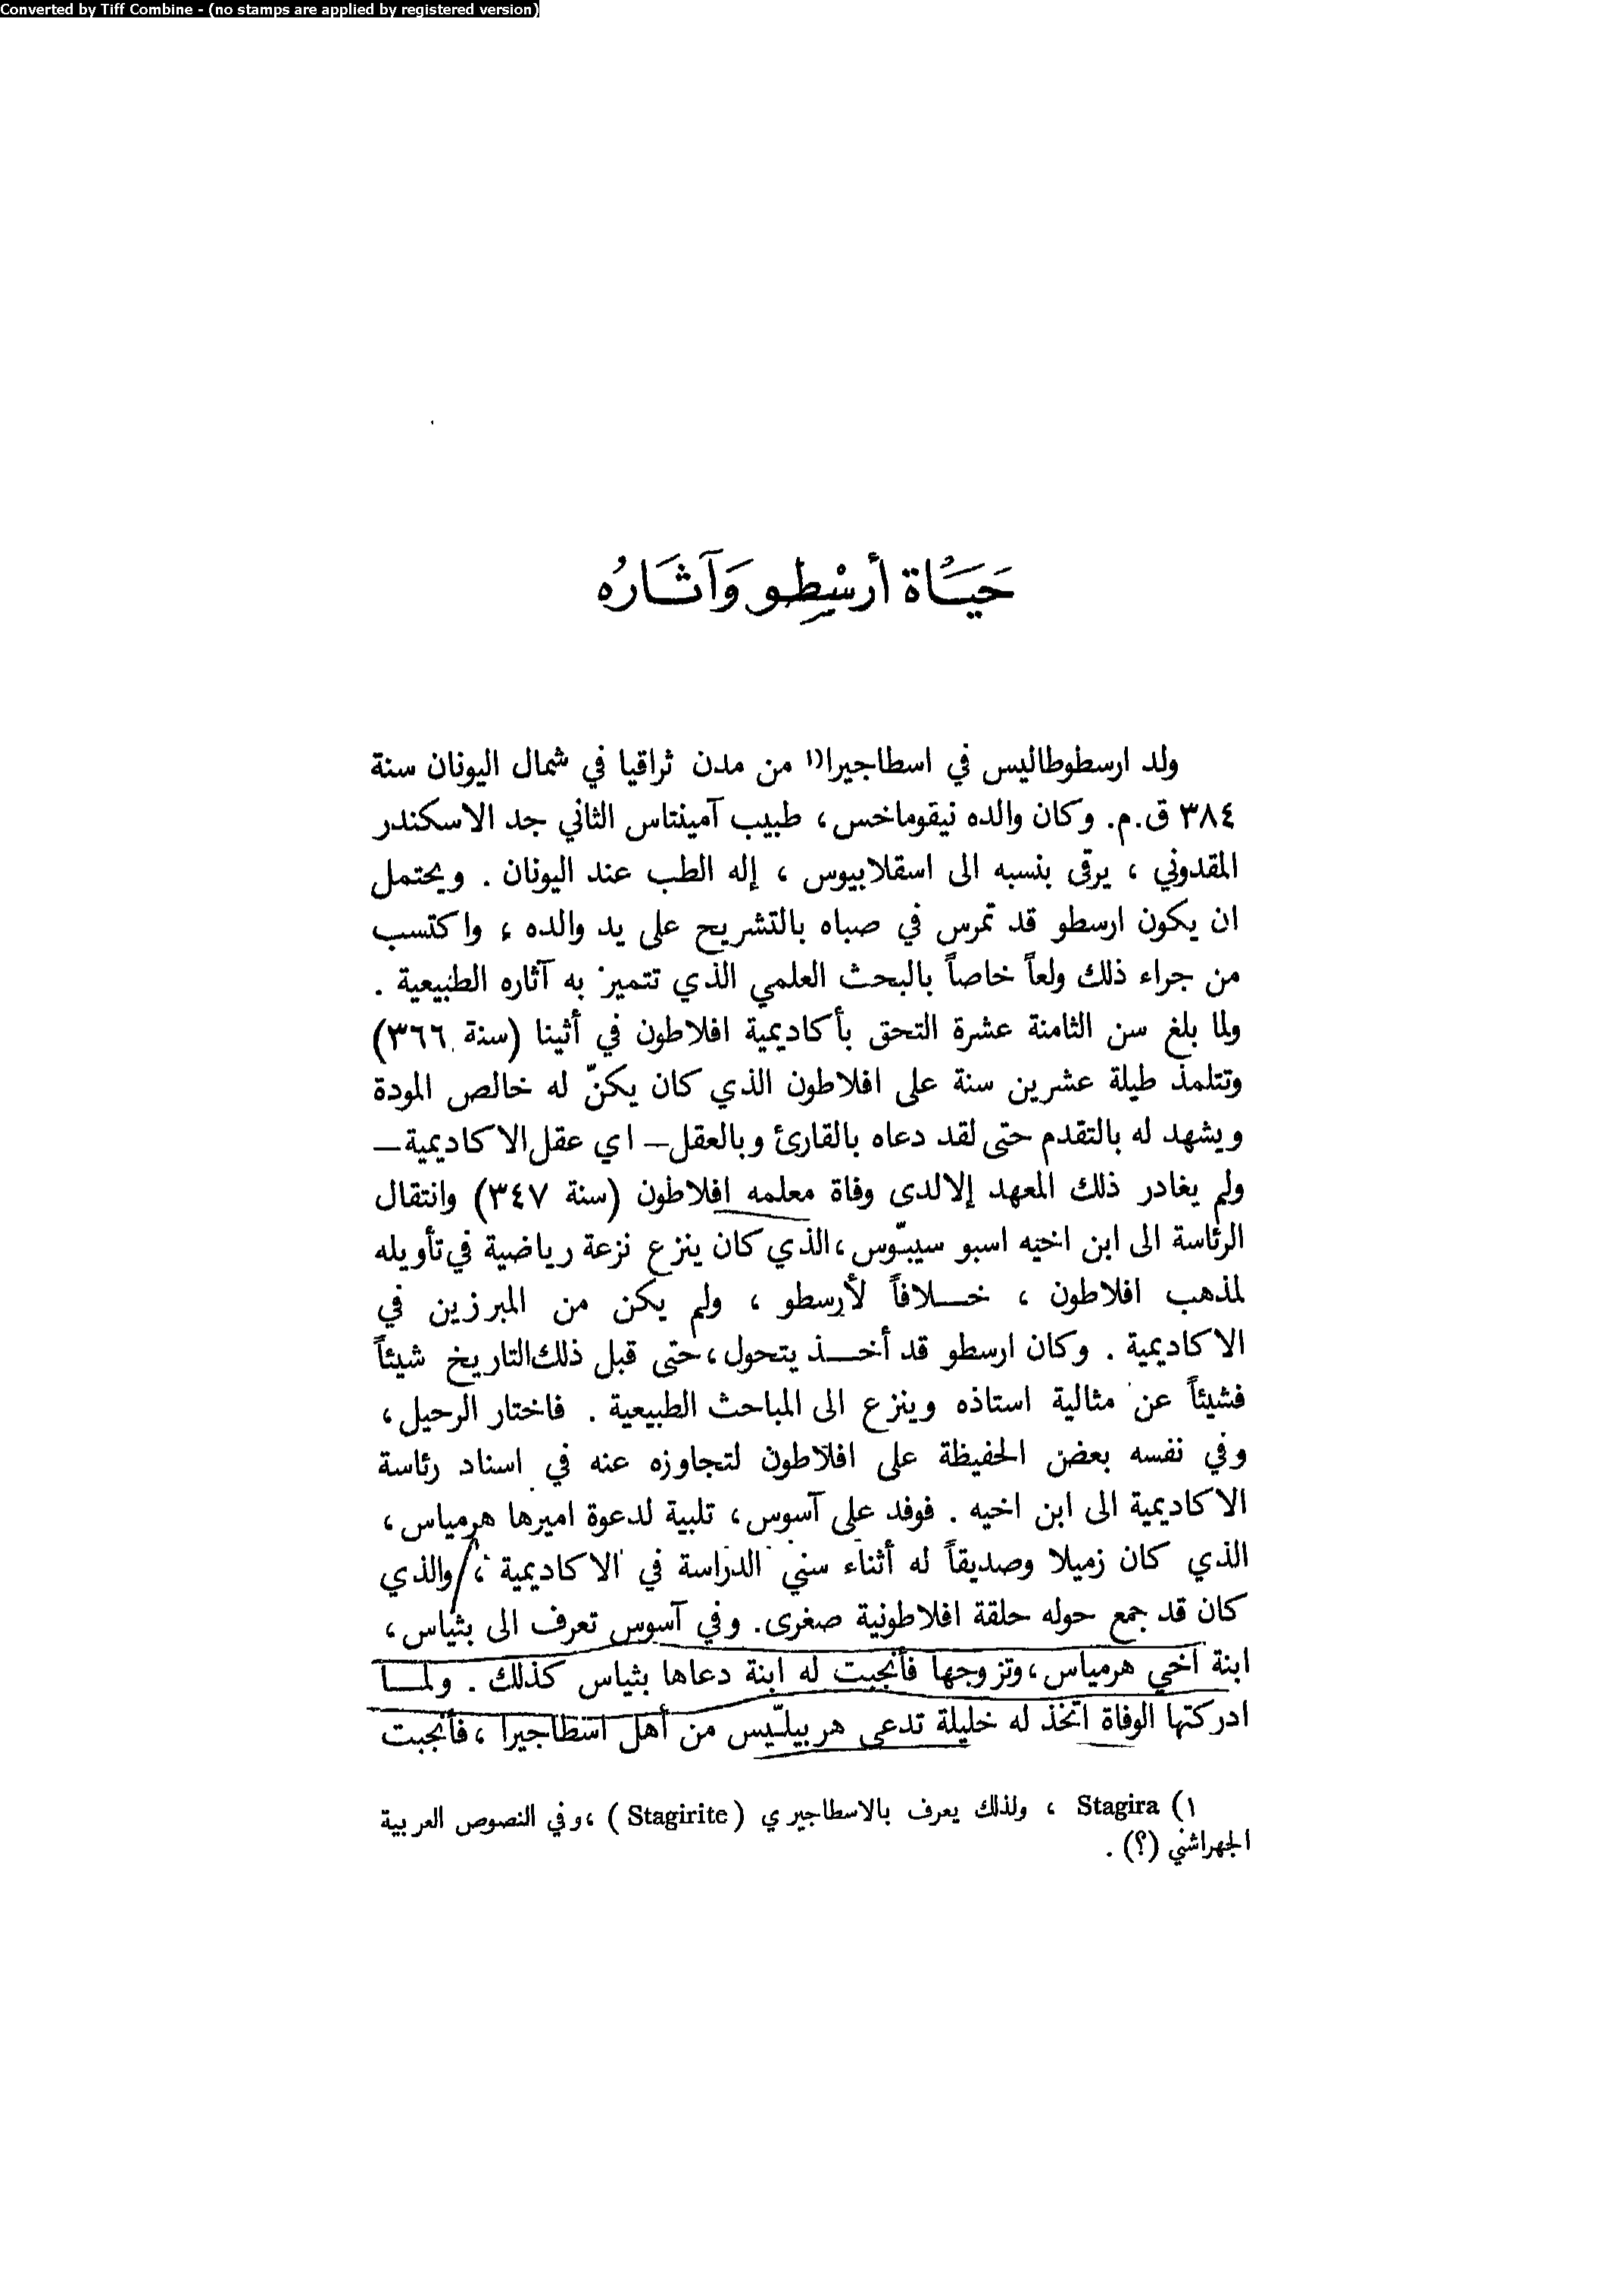 Converted by Tiff Combine - (no stamps are applied by registered version)
حَيَاةُ أرسْطِو وَآثَارُه
ولد ارسطوطاليس في اسطاجيرا١) من مدن ثراقيا في شمال اليونان سنة
٣٨٤ ق.م. وكان والده نيقوماخس، طبيب آمينتاس الثاني جد الاسكندر
المقدوني ، يرقى بنسبه الى اسقلابيوس ، إله الطب عند اليونان . ويحتمل
ان يكون ارسطو قد تمرس في صباه بالتشريح على يد والده ، واكتسب
من جراء ذلك ولعاً خاصاً بالبحث العلمي الذي تتميز به آثاره الطبيعية .
ولما بلغ سن الثامنة عشرة التحق بأكاديمية افلاطون في أثينا (سنة ٣٦٦)
وتتلمذ طيلة عشرين سنة على افلاطون الذي كان يكنّ له خالص المودة
ويشهد له بالتقدم حتى لقد دعاه بالقارئ وبالعقل – اي عقل الاكاديمية –
ولم يغادر ذلك المعهد إلا لدى وفاة معلمه افلاطون (سنة ٣٤٧) وانتقال
الرئاسة الى ابن اخيه اسبو سيبّوس، الذي كان ينزع نزعة رياضية في تأويله
لمذهب افلاطون ، خـــلافاً لأرسطو ، ولم يكن من المبرزين في
الاكاديمية . وكان ارسطو قد أخـــذ يتحول، حتى قبل ذلك التاريخ شيئاً
فشيئاً عن مثالية استاذه وينزع الى المباحث الطبيعية . فاختار الرحيل،
وفي نفسه بعض الحفيظة على افلاطون لتجاوزه عنه في اسناد رئاسة
الاكاديمية الى ابن اخيه . فوفد على آسوس، تلبية لدعوة اميرها هرمياس،
الذي كان زميلا وصديقاً له أثناء سني الدراسة في الاكاديمية ، والذي
كان قد جمع حوله حلقة افلاطونية صغرى. وفي آسوس تعرف الى بثياس،
ابنة اخي هرمياس، وتزوجها فأنجبت له ابنة دعاها بثياس كذلك . ولمـــا
ادركتها الوفاة اتخذ له خليلة تدعى هربيلّيس من أهل اسطاجيرا ، فأنجبت
١) Stagira ، ولذلك يعرف بالاسطاجيري (Stagirite) ، وفي النصوص العربية
الجهراشني (؟) .